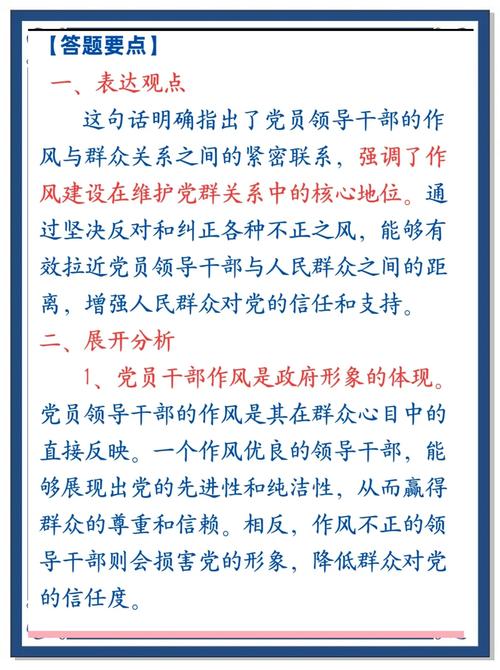 【答题要点】
一、表达观点
这句话明确指出了党员领导干部的作
风与群众关系之间的紧密联系，强调了作
风建设在维护党群关系中的核心地位。通
过坚决反对和纠正各种不正之风，能够有
效拉近党员领导干部与人民群众之间的距
离，增强人民群众对党的信任和支持。
二、展开分析
1、党员干部作风是政府形象的体现。
党员领导干部的作风是其在群众心目中的
直接反映。一个作风优良的领导干部，能
够展现出党的先进性和纯洁性，从而赢得
群众的尊重和信赖。相反，作风不正的领
导干部则会损害党的形象，降低群众对党
的信任度。